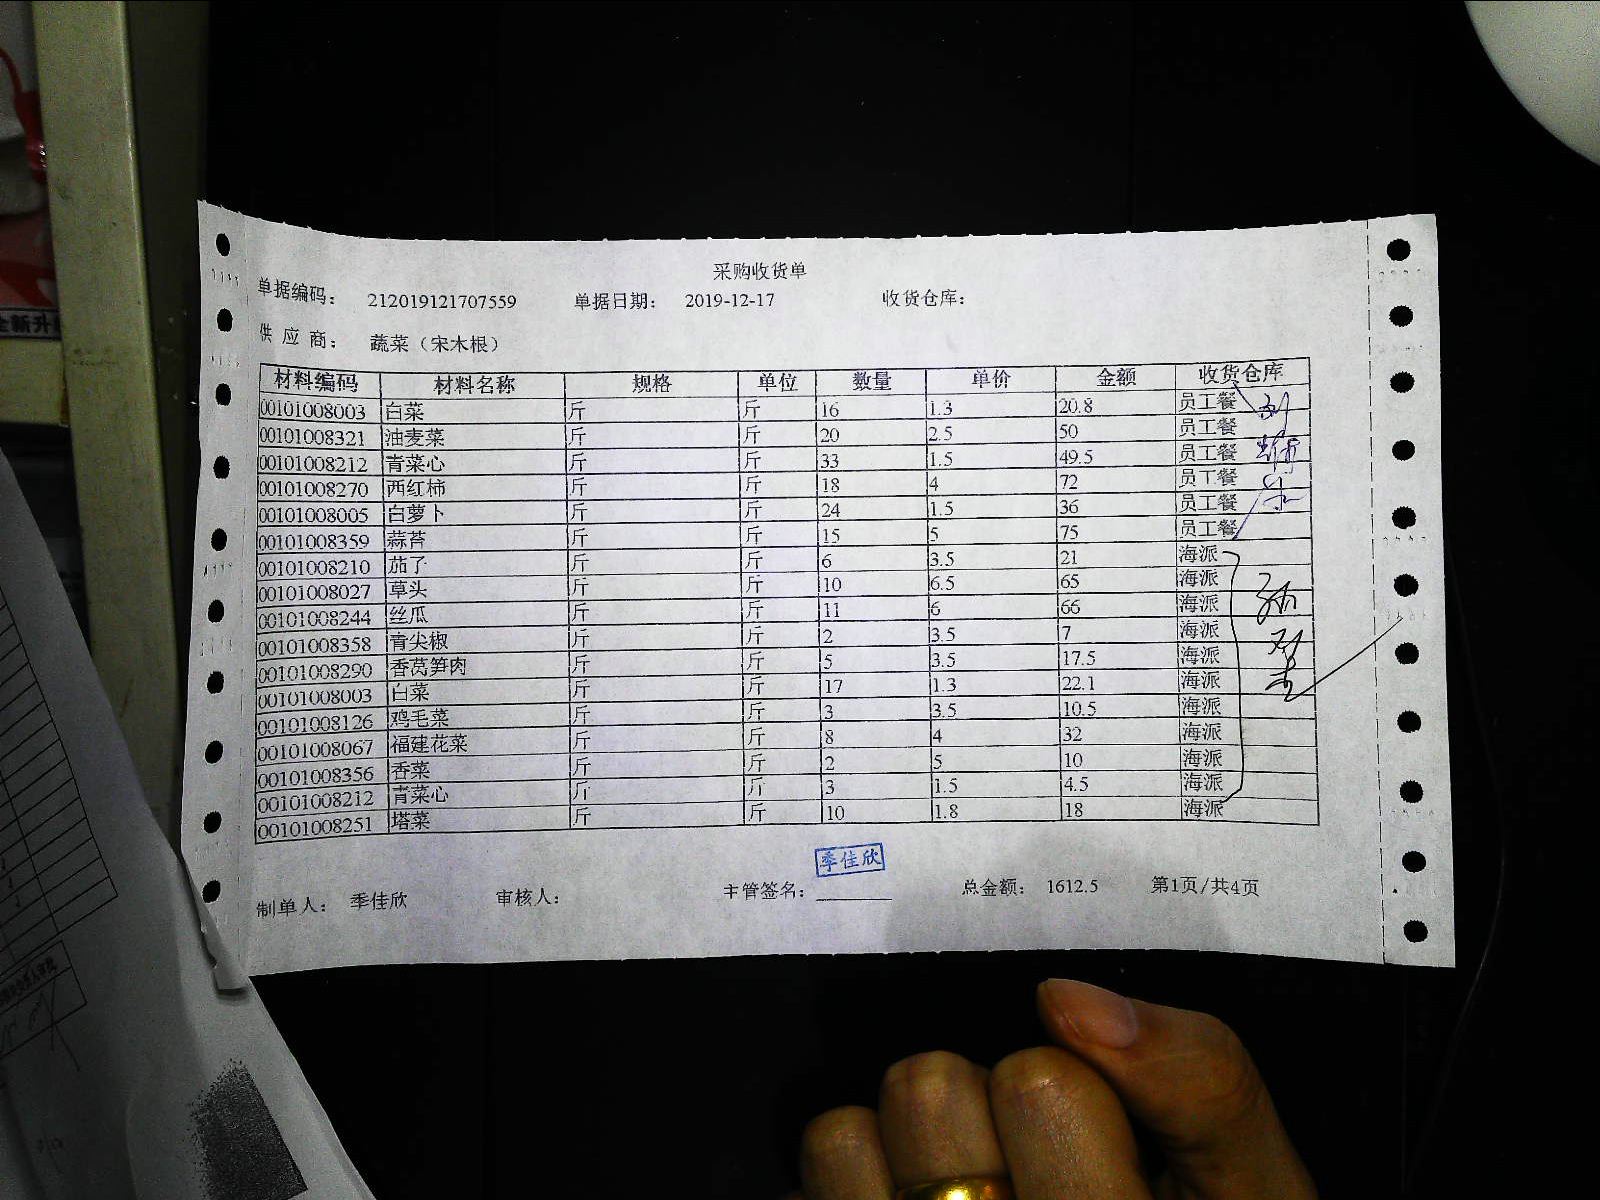 采购收货单
单据编码： 212019121707559 单据日期： 2019-12-17 收货仓库：
供应商： 蔬菜（宋木根）
材料编码 材料名称 规格 单位 数量 单价 金额 收货仓库
00101008003 白菜 斤 斤 16 1.3 20.8 员工餐
00101008321 油麦菜 斤 斤 20 2.5 50 员工餐
00101008212 青菜心 斤 斤 33 1.5 49.5 员工餐
00101008270 西红柿 斤 斤 18 4 72 员工餐
00101008005 白萝卜 斤 斤 24 1.5 36 员工餐
00101008359 蒜苔 斤 斤 15 5 75 员工餐
00101008210 茄子 斤 斤 6 3.5 21 海派
00101008027 草头 斤 斤 10 6.5 65 海派
00101008244 丝瓜 斤 斤 11 6 66 海派
00101008358 青尖椒 斤 斤 2 3.5 7 海派
00101008290 香莴笋肉 斤 斤 5 3.5 17.5 海派
00101008003 白菜 斤 斤 17 1.3 22.1 海派
00101008126 鸡毛菜 斤 斤 3 3.5 10.5 海派
00101008067 福建花菜 斤 斤 8 4 32 海派
00101008356 香菜 斤 斤 2 5 10 海派
00101008212 青菜心 斤 斤 3 1.5 4.5 海派
00101008251 塔菜 斤 斤 10 1.8 18 海派
季佳欣
制单人： 季佳欣 审核人： 主管签名： 总金额： 1612.5 第1页/共4页